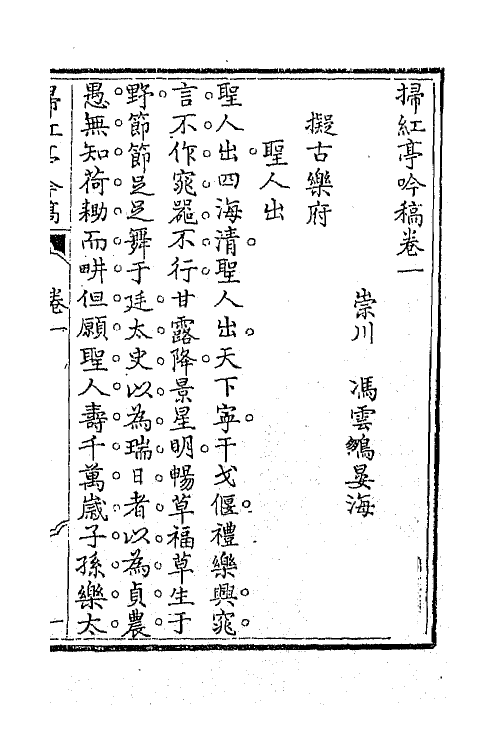 掃紅亭吟稿卷一
崇川　馮雲鵷晏海
擬古樂府
聖人出
聖人出四海清聖人出天下寧干戈偃禮樂興窕
言不作窕器不行甘露降景星明暢草福草生于
野節節足足舞于廷太史以為瑞日者以為貞農
愚無知荷耡而畊但願聖人壽千萬歲子孫樂太
掃紅亭吟稿　卷一　一